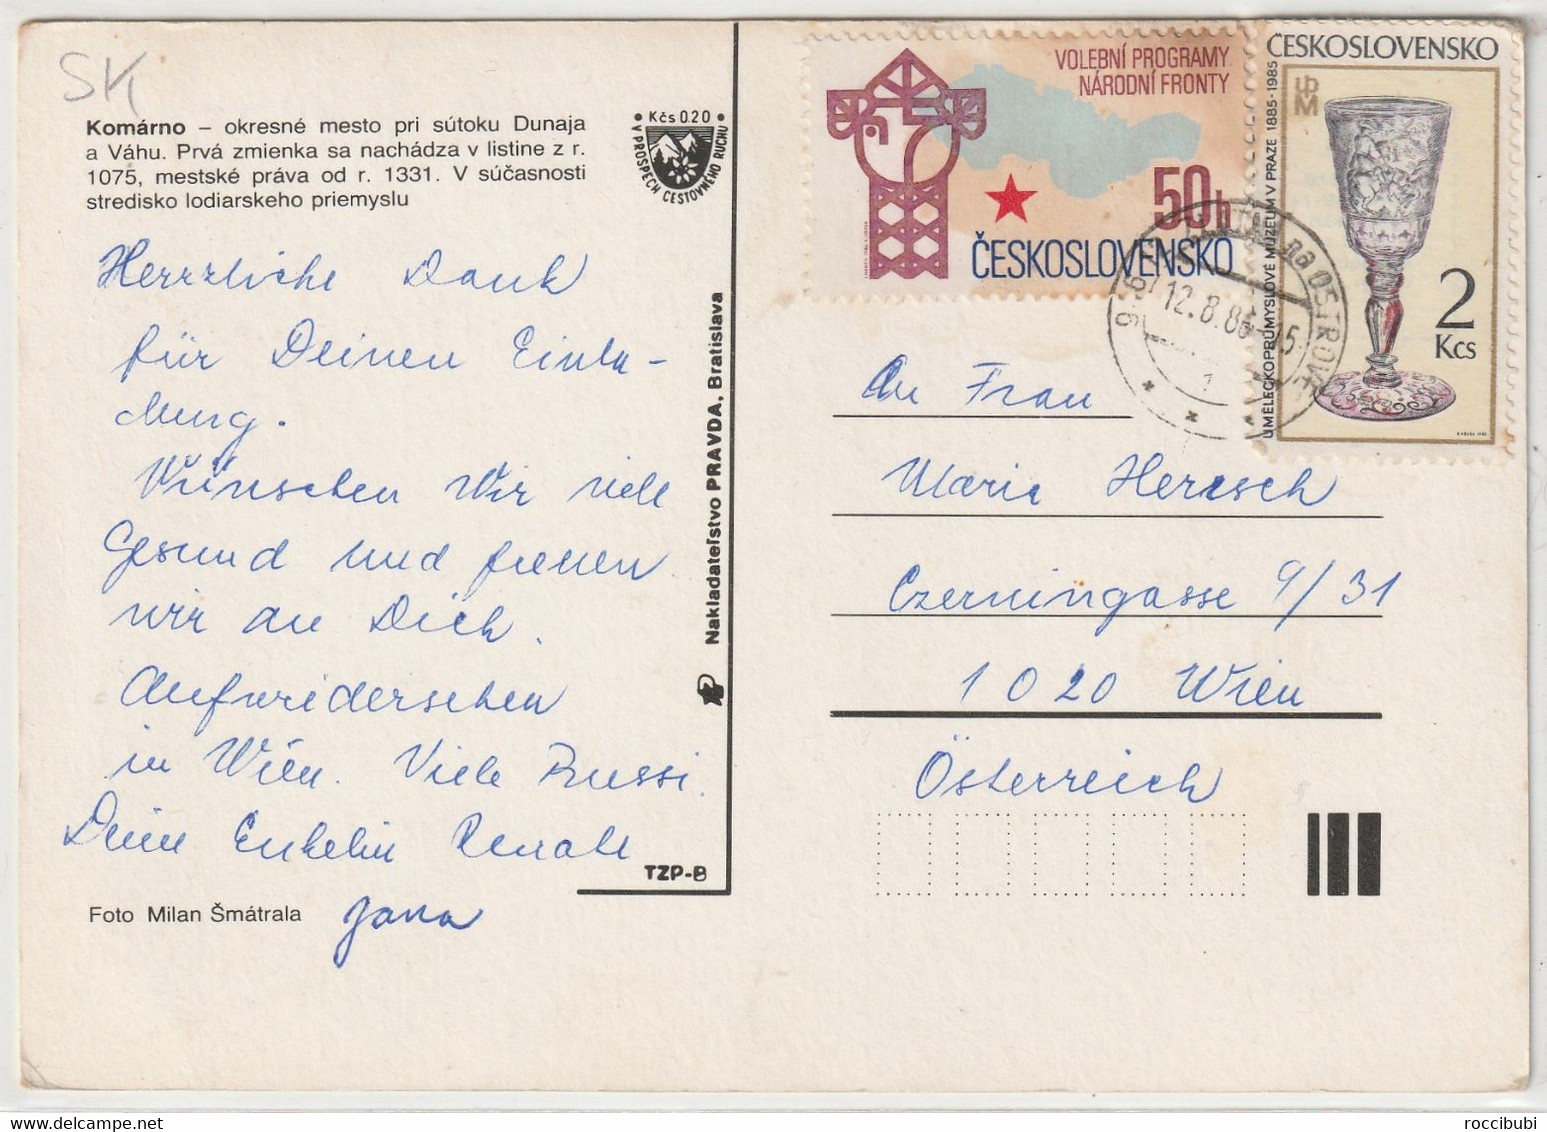 SK
Komárno – okresné mesto pri sútoku Dunaja
a Váhu. Prvá zmienka sa nachádza v listine z r.
1075, mestské práva od r. 1331. V súčasnosti
stredisko lodiarskeho priemyslu
• Kčs 0.20 •
V PROSPECH CESTOVNÉHO RUCHU
Herrzliche Dank
für Deinen Einla-
dung.
Wünschen Wir viele
Gesund und freuen
wir an Dich.
Aufwiedersehen
in Wien. Viele Bussi.
Deine Enkelin Renate
Jana
Foto Milan Šmátrala
TZP-8
Nakladateľstvo PRAVDA, Bratislava
VOLEBNÍ PROGRAMY
NÁRODNÍ FRONTY
50h
ČESKOSLOVENSKO
ČESKOSLOVENSKO
UMĚLECKOPRŮMYSLOVÉ MUZEUM V PRAZE 1885-1985
UPM
2
Kčs
na OSTROVE
12.8.86-15
An Frau
Maria Heresch
Czerningasse 9/31
1020 Wien
Österreich
roccibubi